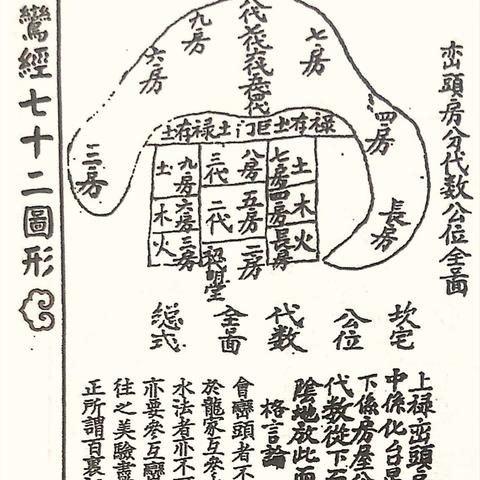 巒頭房分代數公位全啚
八代
七房
九房
六房
四房
三房
長房
禄存土巨門土禄存土
土
七房
八房
三代
九房
土
木
四房
五房
二代
六房
木
火
長房
二房
明堂
三房
火
坎宅
公位
代數
全啚
總式
上禄巒頭
中係化台
下係房屋公
代數從下而
陰地放此而
格言論
會巒頭者不
於龍家互參
水法者亦不
亦要參互巒
往之美驗盡
正所謂百裏
鸞經七十二圖形